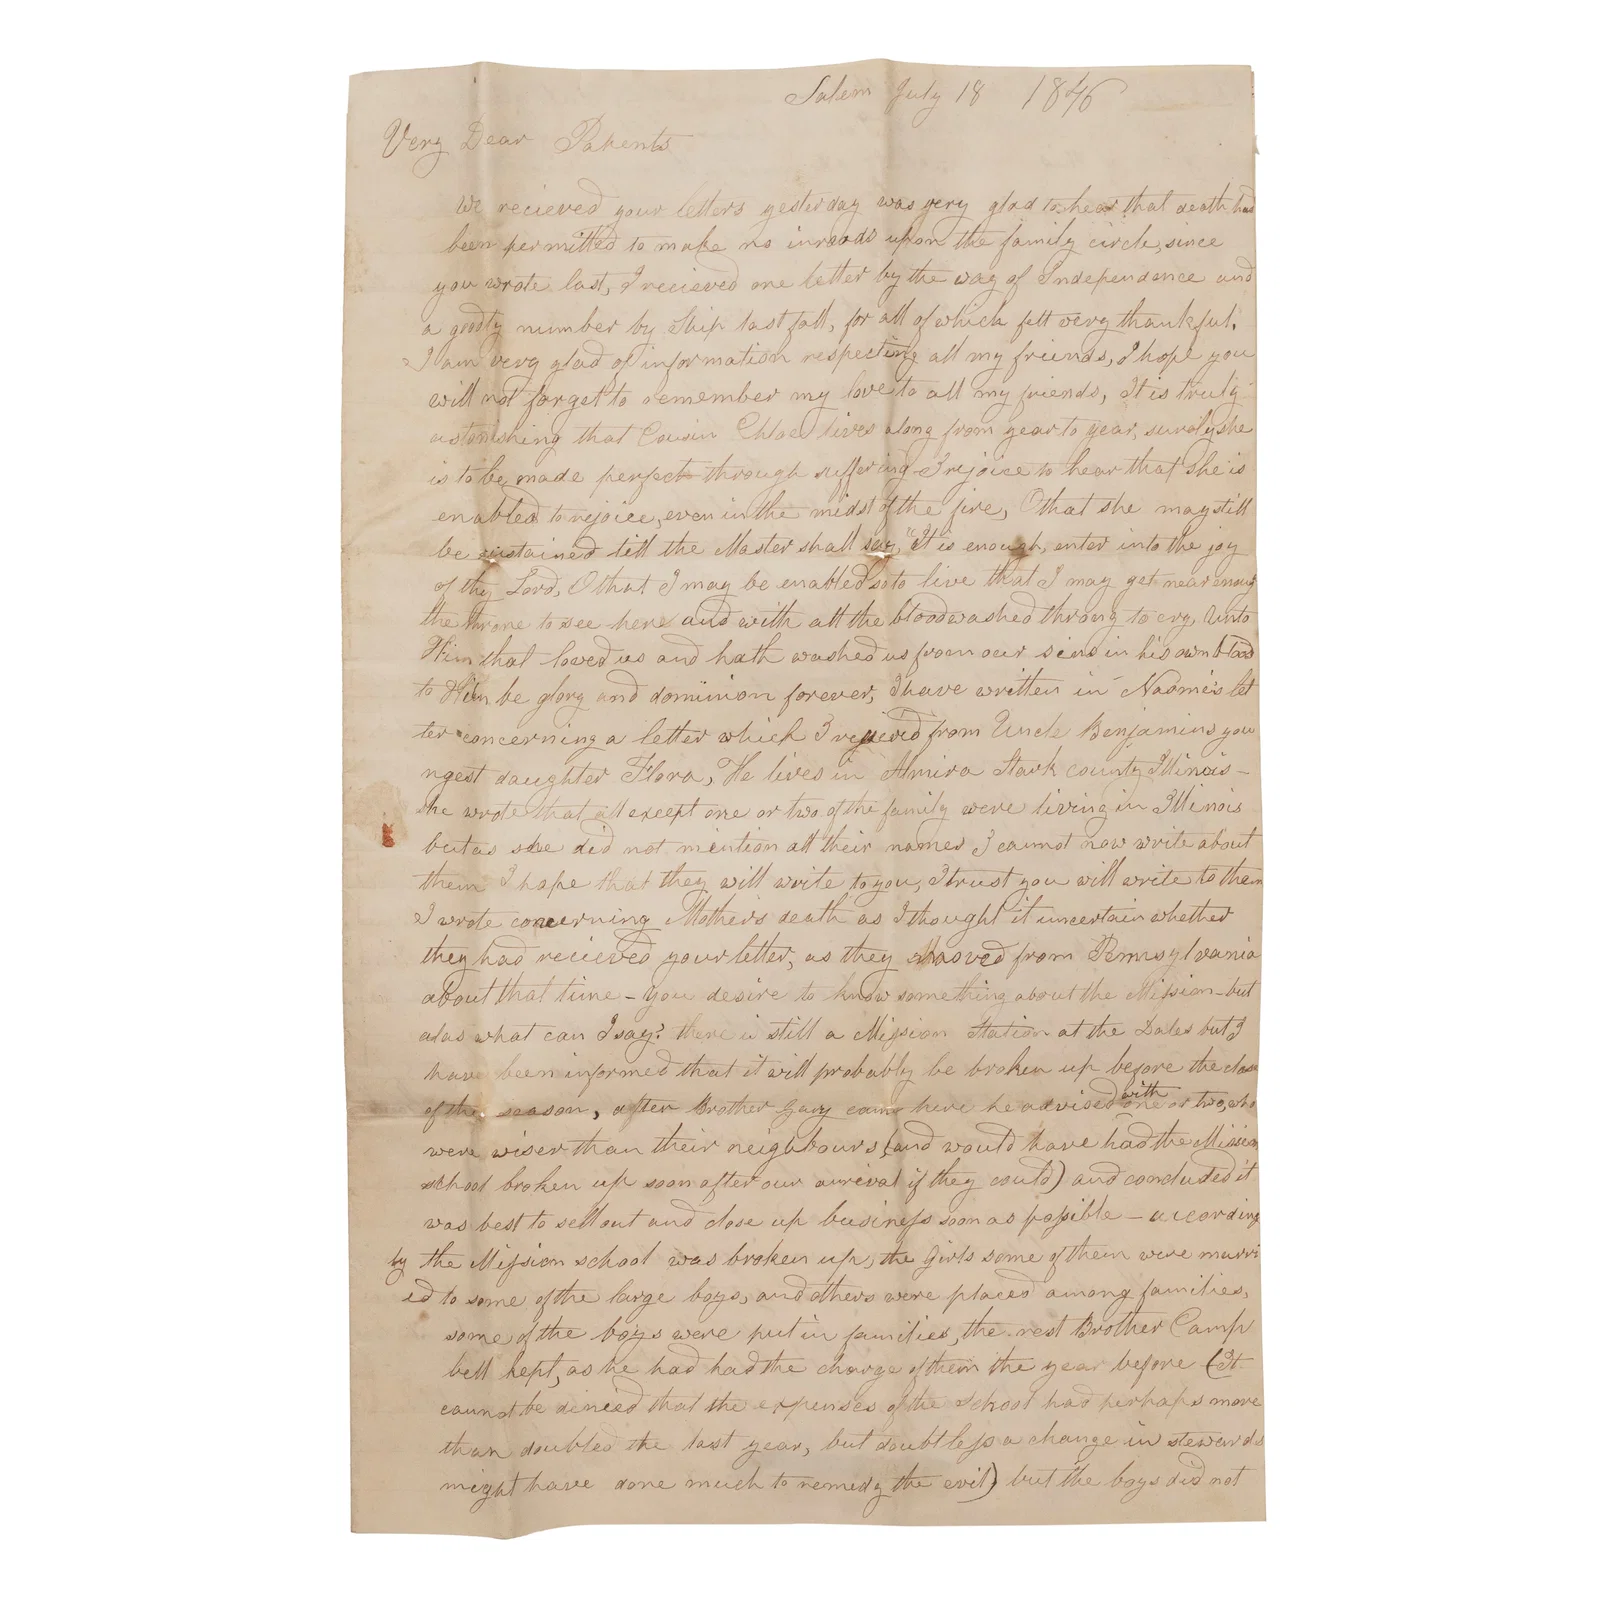 Salem July 18 1846
Very Dear Parents
We recieved your letters yesterday was very glad to hear that death had
been permitted to make no inroads upon the family circle, since
you wrote last, I recieved one letter by the way of Independence and
a goodly number by Ship last fall, for all of which felt very thankful.
I am very glad of information respecting all my friends, I hope you
will not forget to remember my love to all my friends, It is truly
astonishing that Cousin Chloe lives along from year to year, surely she
is to be made perfect through suffering I rejoice to hear that she is
enabled to rejoice, even in the midst of the fire, O that she may still
be sustained till the Master shall say, "It is enough, enter into the joy
of thy Lord, O that I may be enabled so to live that I may get near enoug
the throne to see here and with all the bloodwashed throng to cry, Unto
Him that loved us and hath washed us from our sins in his own blood
to Him be glory and dominion forever, I have written in Naomi's let
ter concerning a letter which I recieved from Uncle Benjamins you
ngest daughter Flora, He lives in Almira Stark county Illinois -
she wrote that all except one or two of the family were living in Illinois
but as she did not mention all their names I cannot now write about
them I hope that they will write to you, I trust you will write to them
I wrote concerning Mother's death as I thought it uncertain whether
they had recieved your letter, as they moved from Pennsylvania
about that time - you desire to know something about the Mission - but
alas what can I say? there is still a Mission Station at the Dales but I
have been informed that it will probably be broken up before the close
of the season, after Brother Gary came here he advised with one or two, who
were wiser than their neighbours, (and would have had the Mission
school broken up soon after our arrival if they could) and concluded it
was best to sell out and close up business soon as possible - according
by the Mission school was broken up, the Girls some of them were marri
ed to some of the large boys, and others were placed among families,
some of the boys were put in families, the rest Brother Camp
bell kept, as he had had the charge of them the year before (It
cannot be denied that the expenses of the school had perhaps more
than doubled the last year, but doubtless a change in stewards
might have done much to remedy the evil) but the boys did not